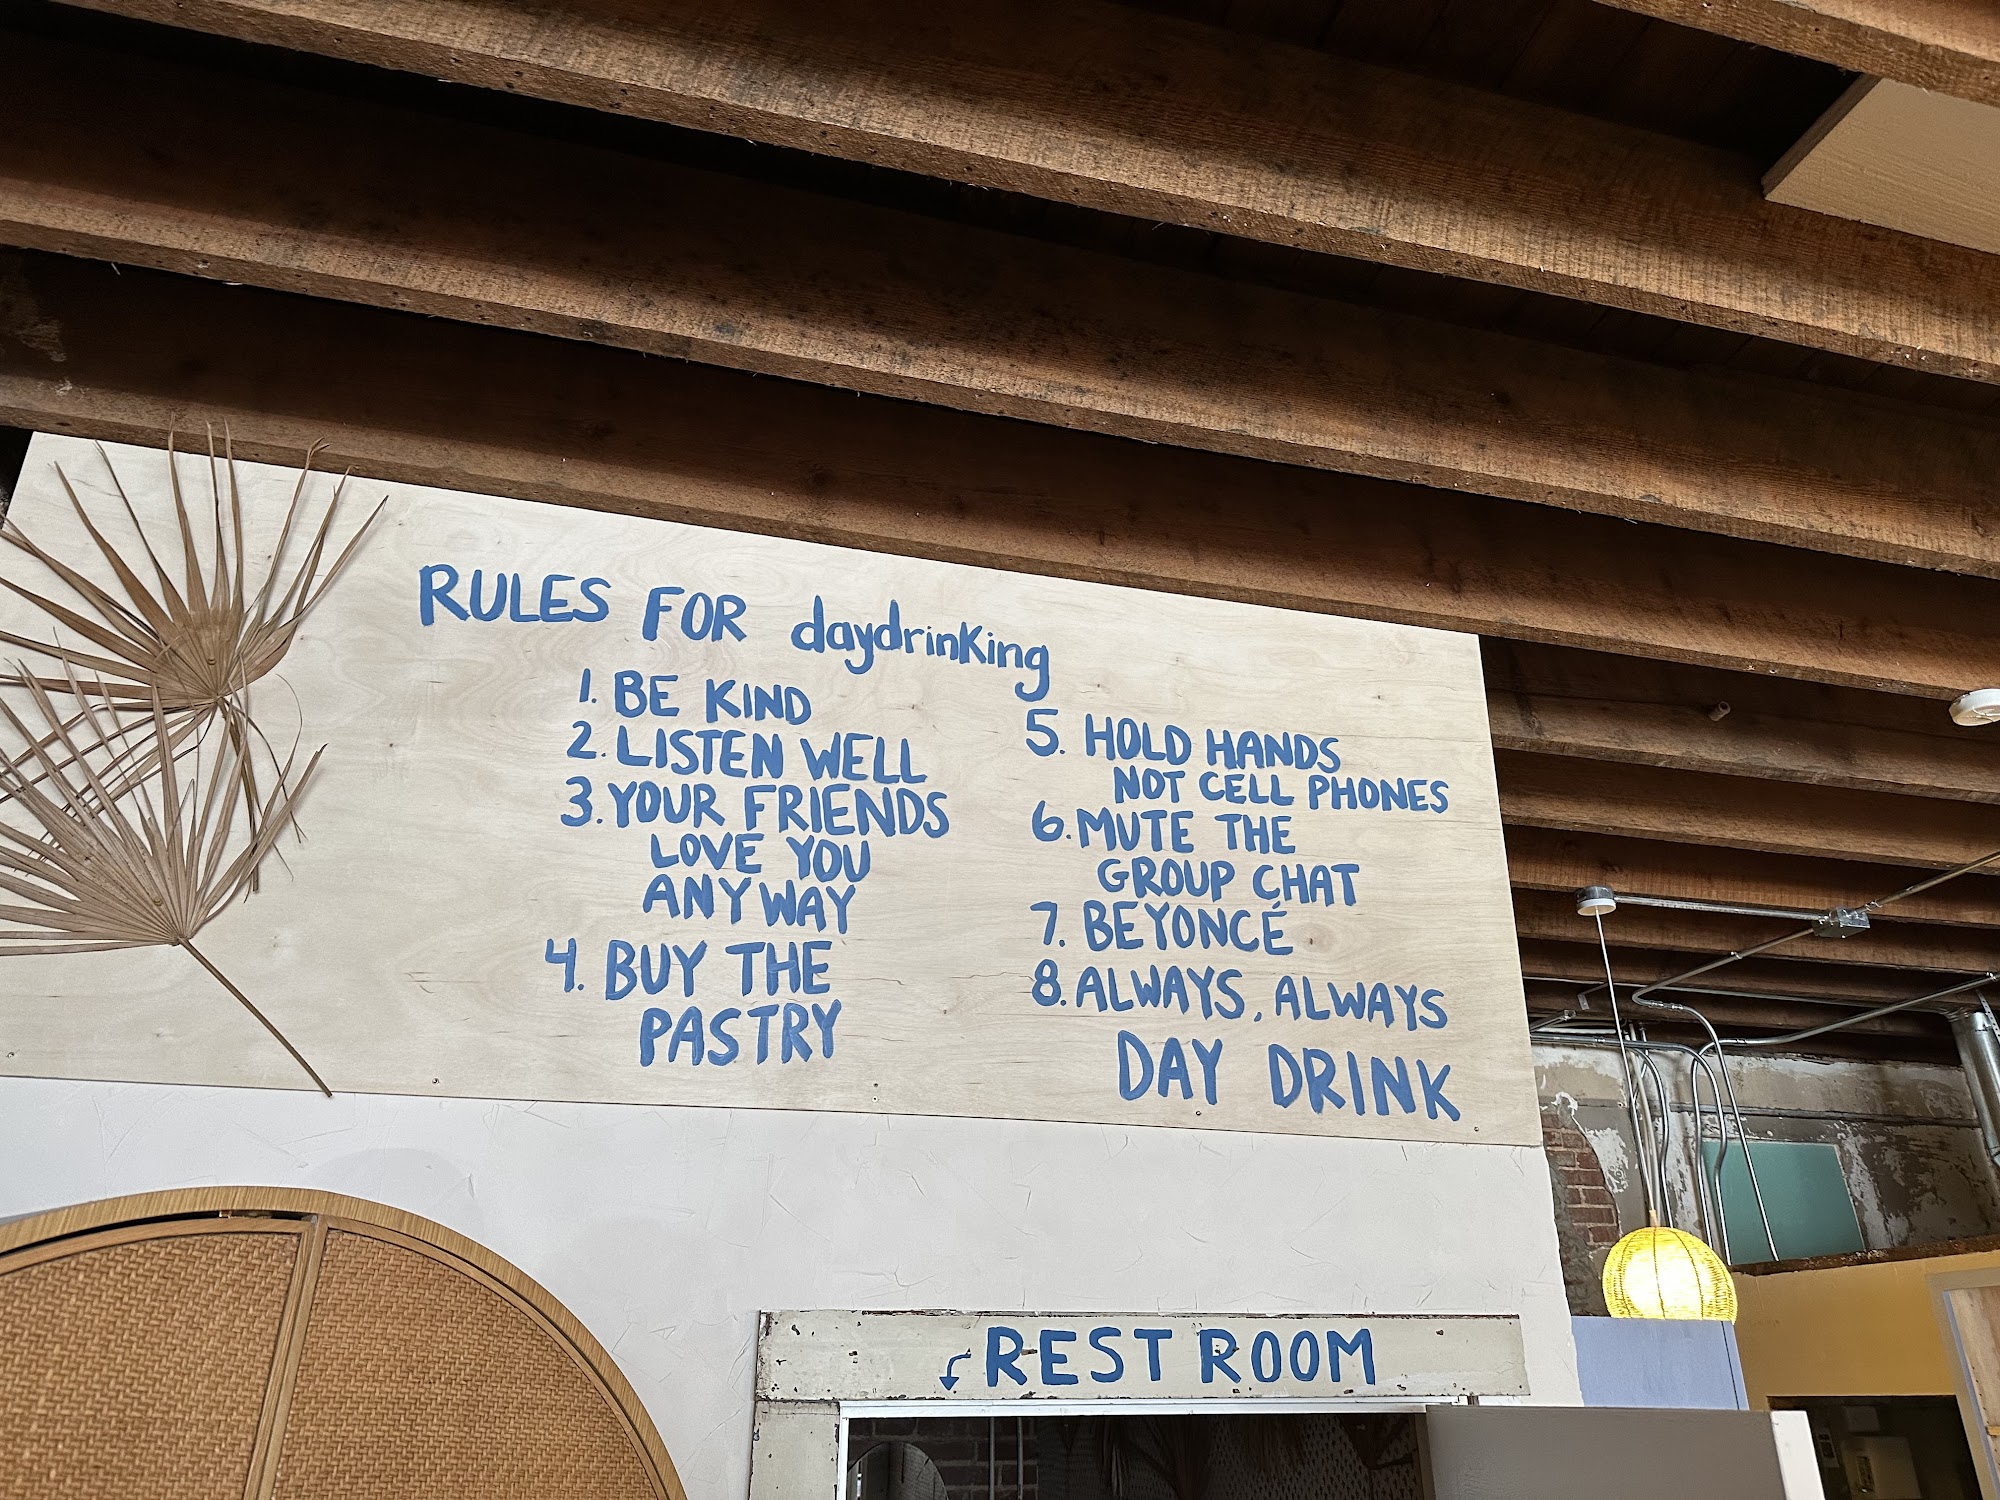 RULES FOR daydrinking
1. BE KIND
2. LISTEN WELL
3. YOUR FRIENDS
LOVE YOU
ANYWAY
4. BUY THE
PASTRY
5. HOLD HANDS
NOT CELL PHONES
6. MUTE THE
GROUP CHAT
7. BEYONCÉ
8. ALWAYS, ALWAYS
DAY DRINK
REST ROOM